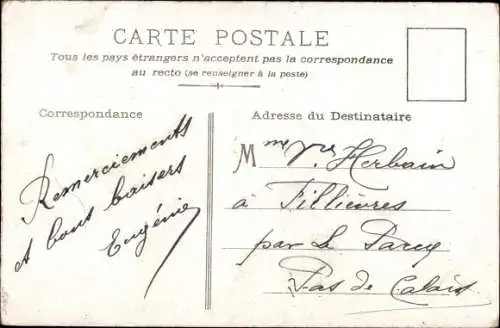 CARTE POSTALE
Tous les pays étrangers n'acceptent pas la correspondance
au recto (se renseigner à la poste)
Correspondance
Adresse du Destinataire
Remerciements
et bons baisers
Eugénie
Mme Vve Herbain
à Fillièvres
par Le Parcq
Pas de Calais